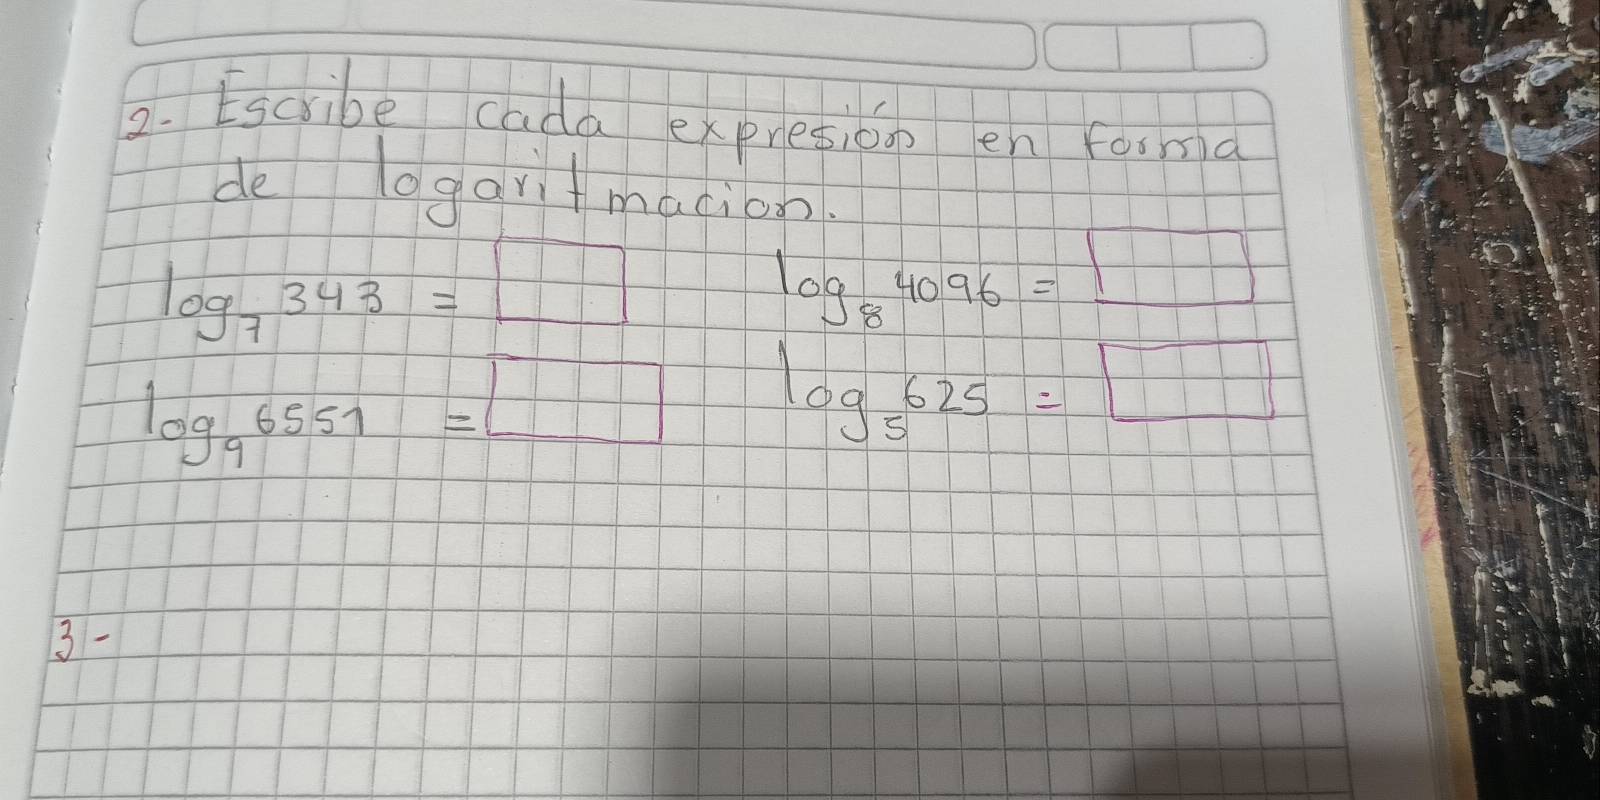 2- Escribe cada expresión en forma
de logaritmacion.
log₇ 343 =
log₈ 4096 =
log₉ 6551 =
log₅ 625 =
3-